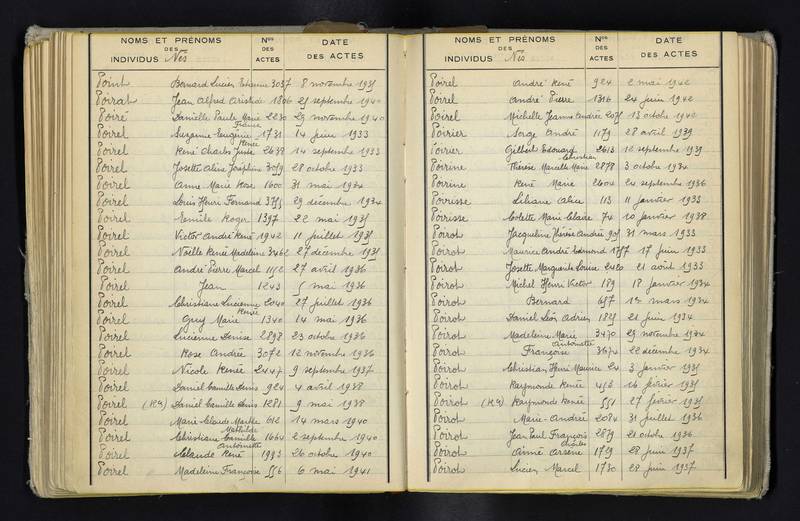 NOMS ET PRÉNOMS DES INDIVIDUS Nés Nos DES ACTES DATE DES ACTES
Point Bernard Lucien Etienne 3037 8 novembre 1935
Poirat Jean Alfred Aristide 1806 25 septembre 1940
Poiré Danielle Paule Marie 2230 29 novembre 1940
France
Poirel Suzanne Eugénie 1731 14 juin 1933
Renée
Poirel René Charles Julien 2638 14 septembre 1933
Poirel Josette Aline Joséphine 3059 28 octobre 1933
Poirel Anne Marie Rose 1600 31 mai 1934
Poirel Louis Henri Fernand 3755 29 décembre 1934
Poirel Emile Roger 1397 22 mai 1935
Poirel Victor André René 1942 11 juillet 1935
Poirel Noëlle René Madeleine 3462 27 décembre 1935
Poirel André Pierre Marcel 1152 27 avril 1936
Poirel Jean 1243 5 mai 1936
Poirel Christiane Lucienne 2040 27 juillet 1936
Renée
Poirel Guy Marie 1340 14 mai 1936
Poirel Lucienne Denise 2898 23 octobre 1936
Poirel Rose Andrée 3072 12 novembre 1936
Poirel Nicole Renée 2447 9 septembre 1937
Poirel Daniel Camille Denis 924 4 avril 1938
Poirel (R.) Daniel Camille Denis 1281 9 mai 1938
Poirel Marie Claude Marthe 612 14 mars 1940
Mathilde
Poirel Christiane Camille 1664 2 septembre 1940
Antoinette
Poirel Claude René 1993 26 octobre 1940
Poirel Madeleine Françoise 556 6 mai 1941
NOMS ET PRÉNOMS DES INDIVIDUS Nés Nos DES ACTES DATE DES ACTES
Poirel André René 924 2 mai 1942
Poirel André Pierre 1316 24 juin 1942
Poirel Michelle Jeanne Andrée 2075 13 octobre 1942
Poirier Serge André 1179 28 avril 1939
Poirier Gilbert Edouard 2613 12 septembre 1939
Christian
Poirine Thérèse Marcelle Marie 2878 3 octobre 1934
Poirine René Marie 2604 24 septembre 1936
Poirisse Liliane Alice 113 11 janvier 1933
Poirisse Colette Marie Claire 74 10 janvier 1938
Poirot Jacqueline Thérèse Andrée 905 31 mars 1933
Poirot Maurice André Edmond 1757 17 juin 1933
Poirot Josette Marguerite Louise 2420 21 août 1933
Poirot Michel Henri Victor 189 18 janvier 1934
Poirot Bernard 657 1er mars 1934
Poirot Daniel Léon Adrien 1825 21 juin 1934
Poirot Madeleine Marie 3470 29 novembre 1934
Antoinette
Poirot Françoise 3674 22 décembre 1934
Poirot Christian Henri Maurice 24 3 janvier 1935
Poirot Raymonde Renée 456 16 février 1935
Poirot (R.) Raymonde Renée 551 27 février 1935
Poirot Marie-Andrée 2084 31 juillet 1936
Poirot Jean Paul François 2859 21 octobre 1936
Charles
Poirot Aimé Arsène 1759 28 juin 1937
Poirot Lucien Marcel 1730 28 juin 1937